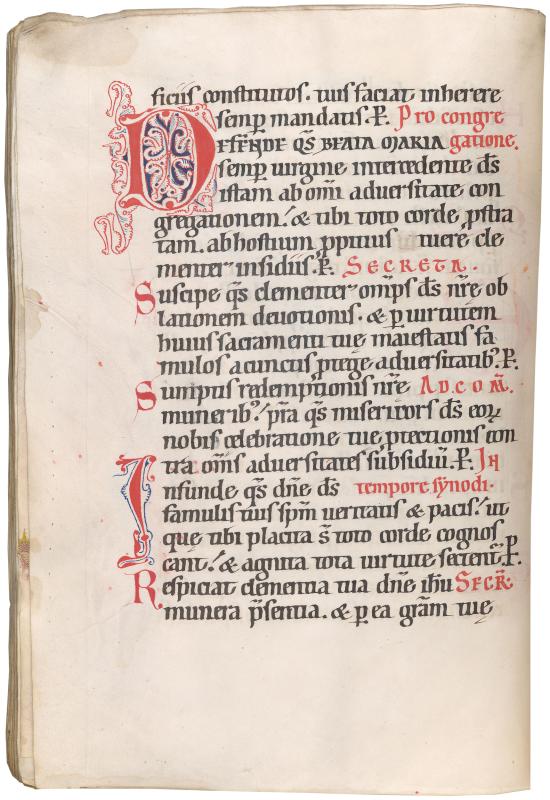 ficiis constitutos. tuis faciat inherere
semp mandatis. P. Pro congre
DEFENDE QS BEATA MARIA gatione.
semp uirgine intercedente ds
istam ab omi aduersitate con
gregationem. & tibi toto corde pstra
tam. ab hostium ppitius tuere cle
menter insidiis. P. SECRETA.
Suscipe qs clementer omps ds nre ob
lationem deuotionis. & p uirtutem
huius sacramenti tue maiestatis fa
mulos a cunctis ptege aduersitatib. P.
Sumptis redemptionis nre AD COM.
munerib. pra qs misericors ds eor
nobis celebratione tue ptectionis con
tra oms aduersitates subsidiu. P. IN
Infunde qs dne ds tempore synodi.
famulis tuis spm ueritatis & pacis. ut
que tibi placita s toto corde cognos
cant. & agnita tota uirtute sectent. P.
Respiciat clementia tua dne ihu SECR.
munera psentia. & p ea gram tue